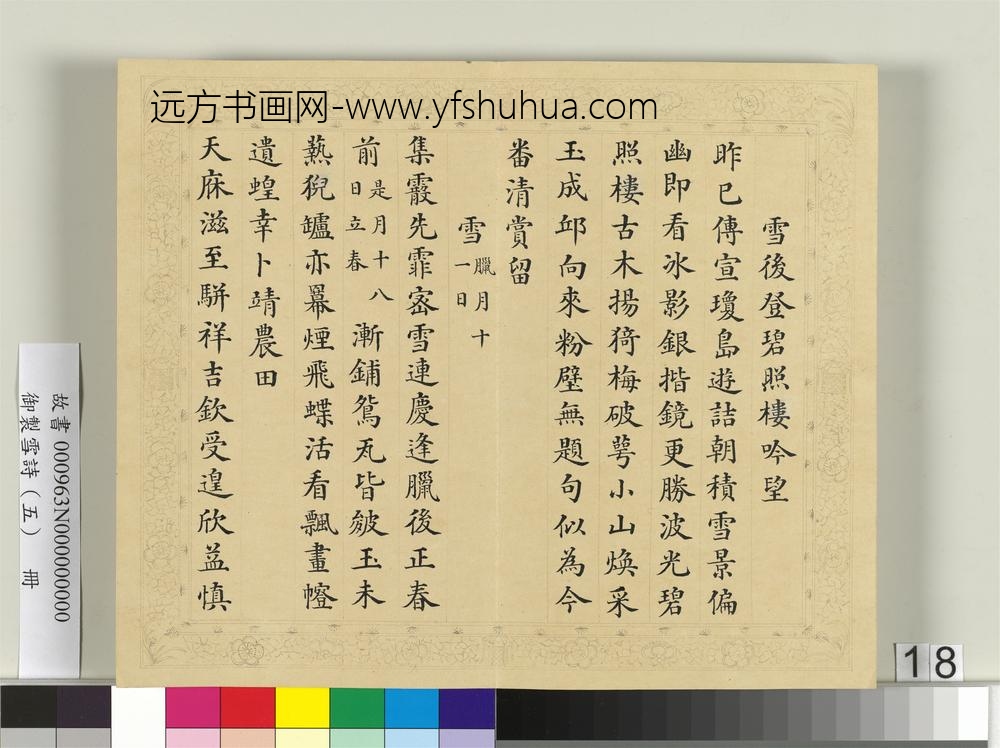 远方书画网-www.yfshuhua.com
雪後登碧照樓吟望
昨已傳宣瓊島遊詰朝積雪景偏
幽即看冰影銀揩鏡更勝波光碧
照樓古木揚猗梅破萼小山煥采
玉成邱向來粉壁無題句似為今
番清賞留
雪臘月十一日
集霰先霏密雪連慶逢臘後正春
前是月十八日立春漸鋪鴛瓦皆皴玉未
爇猊罏亦羃煙飛蝶活看飄畫㡧
遺蝗幸卜靖農田
天庥滋至駢祥吉欽受遑欣益慎
故書 000963N000000000
御製雪詩(五) 冊
18